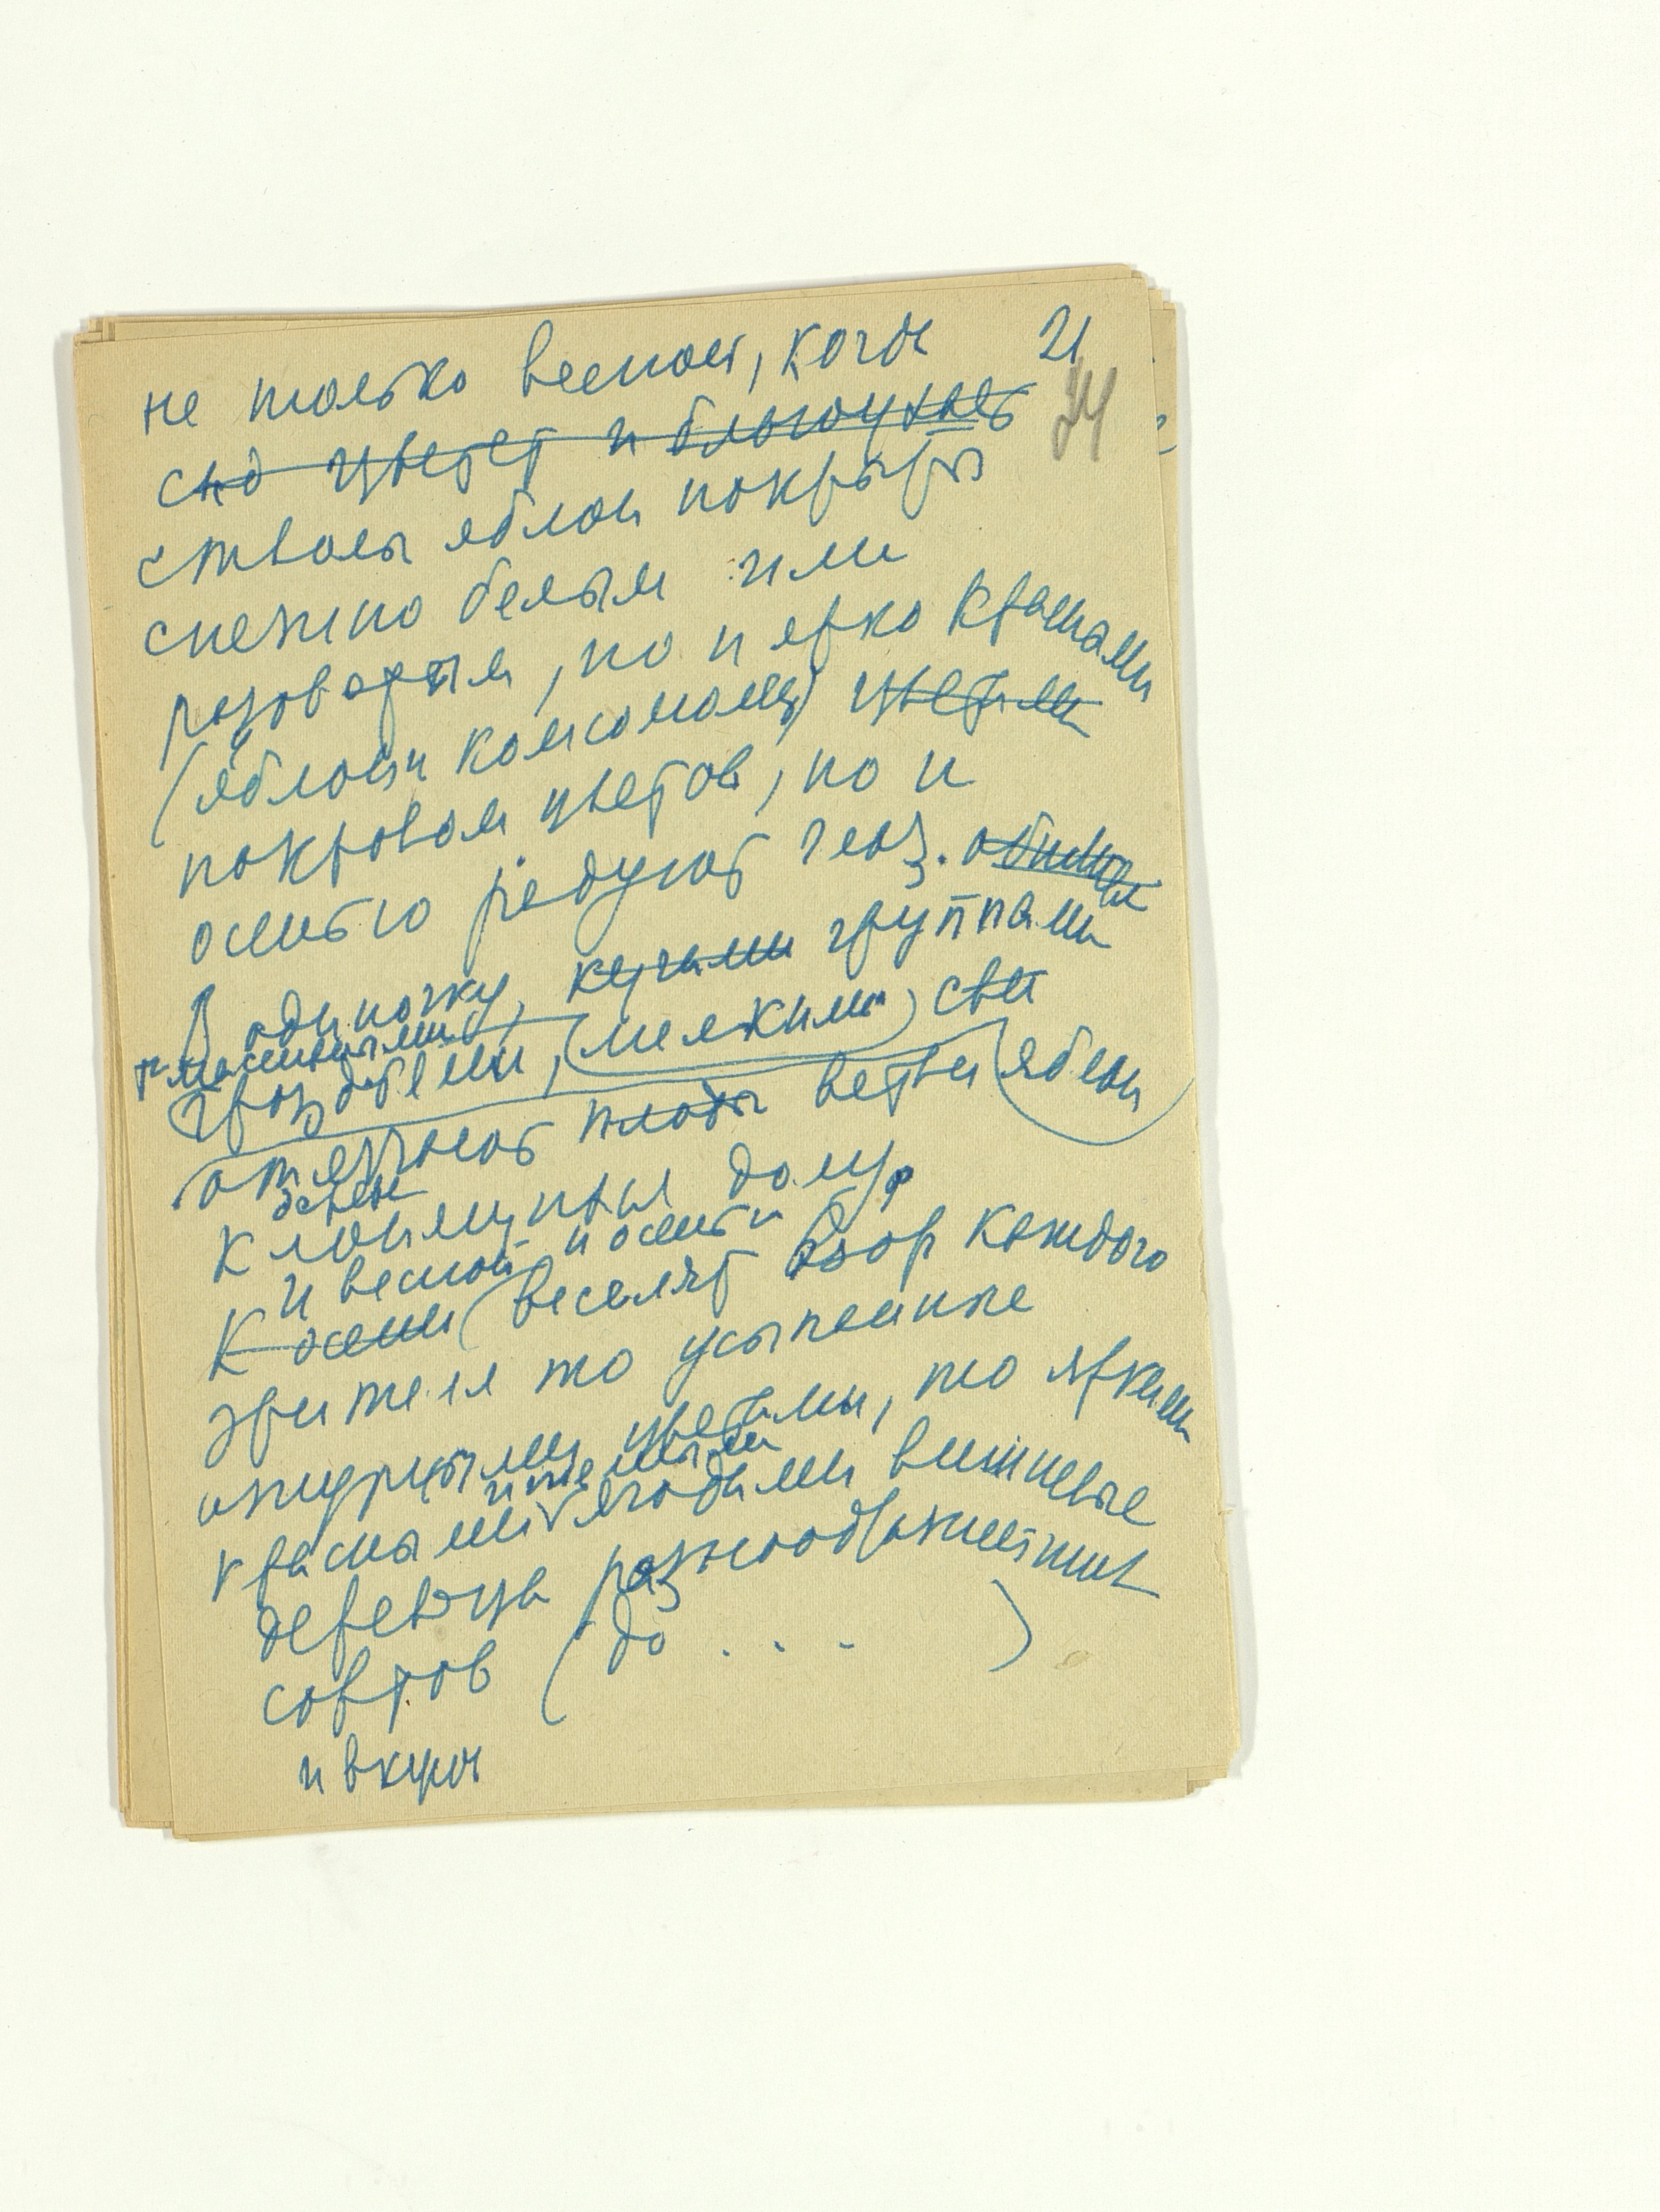 не только весной, когда 21
24
сад цветет и благоухает
стволы яблон покрыты
снежно белым или
розоватым, но и ярко красными
(яблони комсомолец) цветами
покровом цветов, но и
осенью радуют глаз.
В одиночку, кучами группами
гроздьями, (мелкими)
отягчают плоды ветви яблон
осенью
клонящиеся долу
и весной и осенью
К осени (веселят взор каждого
зрителя то усыпанные
ажурными цветами, то яркими
красными ягодами вишневые
деревца разнообразнейших
сортов (до . . . )
и вкуса